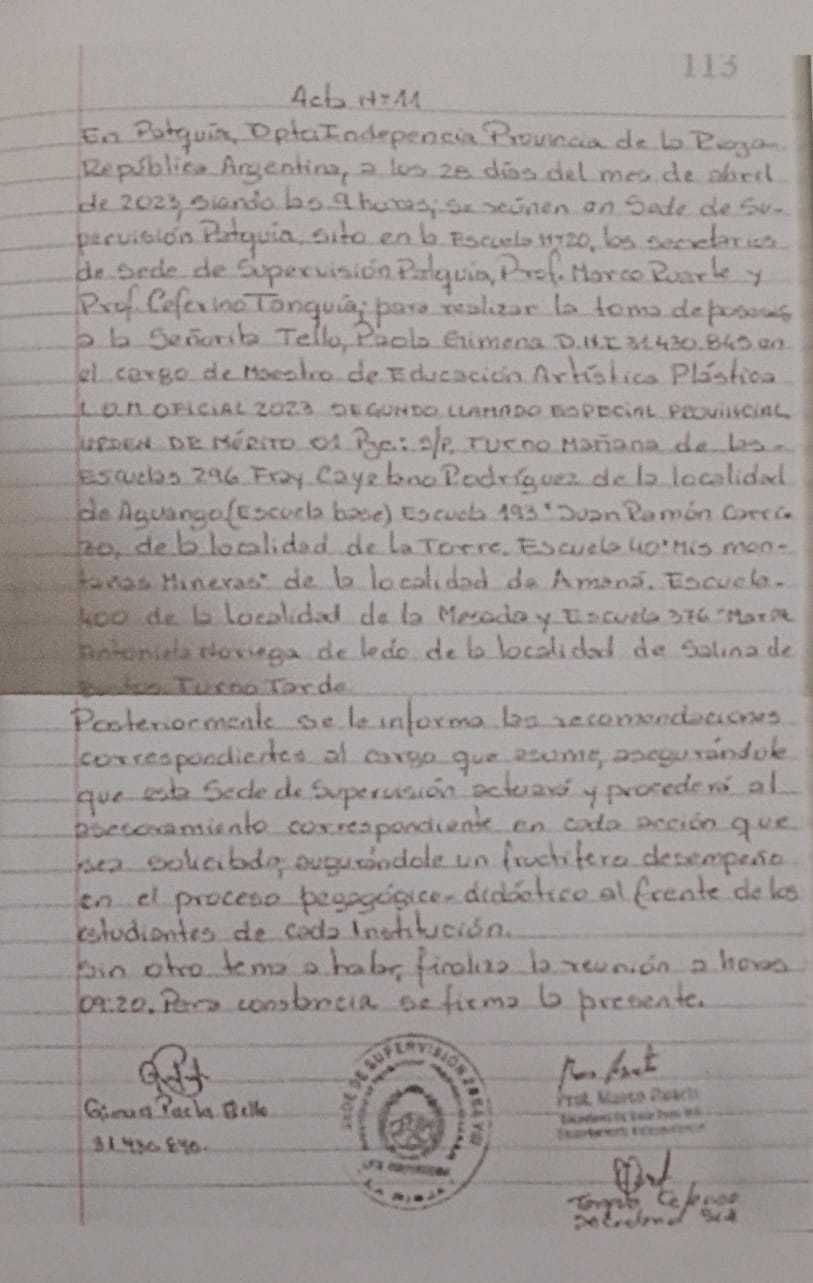 113
Acta N=11
En Patquía, Dpto Indepencia Provincia de la Rioja
República Argentina, a los 28 días del mes de abril
de 2023, siendo las 9 horas; se reúnen en Sede de Su-
pervisión Patquía, sito en la Escuela N=20, los secretarios
de sede de Supervisión Patquía, Prof. Marco y
Prof. Ceferino Tanquía; para realizar la toma de
a la Señorita Tello, Paola Gimena D.N.I 31.430.840 en
el cargo de Maestro de Educación Artística Plástica
L.O.M OFICIAL 2023 SEGUNDO LLAMADO ESPECIAL PROVINCIAL
ORDEN DE MÉRITO 01 S/P, TURNO Mañana de las
Escuelas 296 Fray Cayetano Rodríguez de la localidad
de Aguango (Escuela base) Escuela 193 "Juan Ramón
de la localidad de la Torre. Escuela 40 "Mis mon-
tañas Mineras" de la localidad de Amaná. Escuela
400 de la localidad de la Mesada y Escuela 376 "María
Antonieta Noriega de ledo de la localidad de Salina de
Bustos. Turno Tarde
Posteriormente se le informa las recomendaciones
correspondientes al cargo que asume, asegurándole
que esta Sede de Supervisión actuará y procederá al
asesoramiento correspondiente en cada acción que
sea solicitada; augurándole un fructífero desempeño
en el proceso didáctico al frente de los
estudiantes de cada Institución.
Sin otro tema a finaliza la reunión a horas
09:20. Para constancia se firma la presente.
Paola Tello
31.430.840.
SEDE DE SUPERVISIÓN ZONA
Prof. Marco
Ceferino